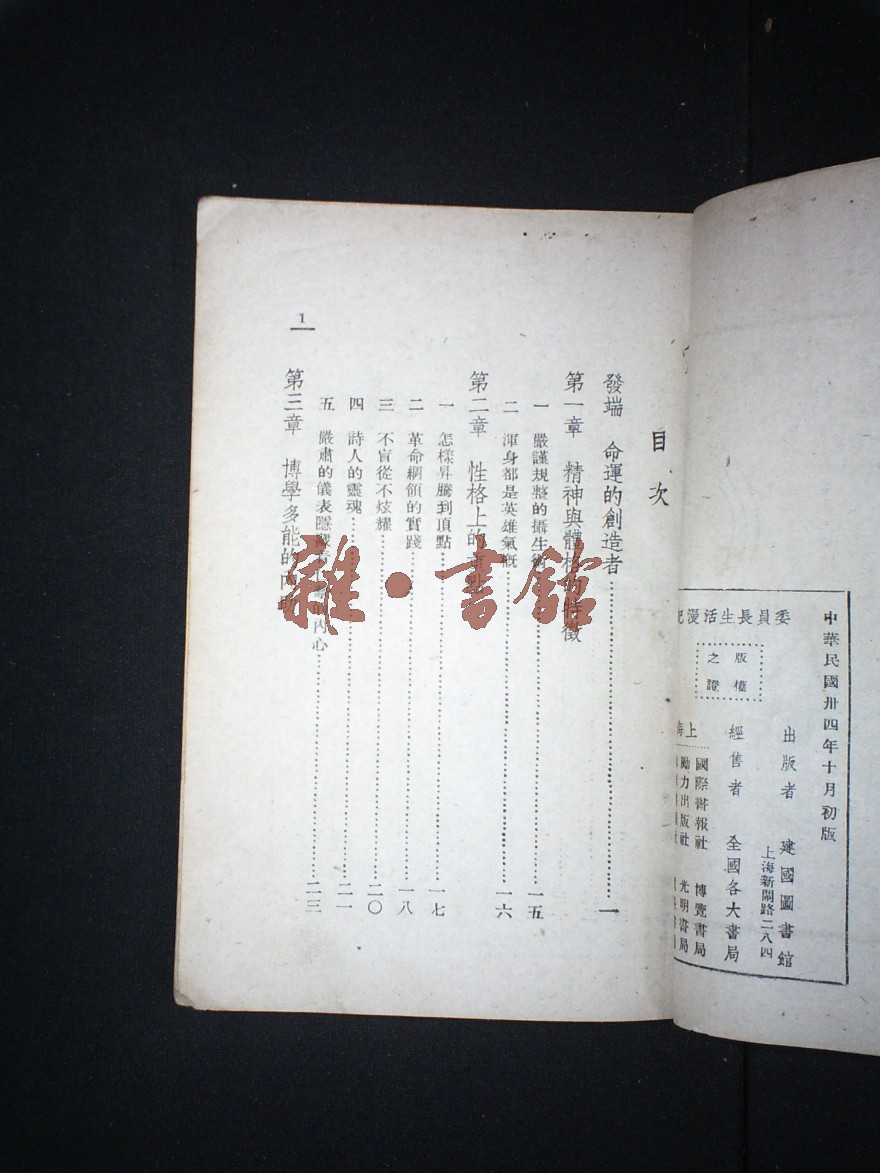 中華民國卅四年十月初版
出版者 建國圖書館
上海新閘路二八四
經售者 全國各大書局
上海
國際書報社 博覽書局
勵力出版社 光明書局
委員長生活漫記
版權
之證
目次
發端 命運的創造者 一
第一章 精神與體格的特徵
一 嚴謹規整的攝生術 一五
二 渾身都是英雄氣概 一六
第二章 性格上的
一 怎樣昇騰到頂點 一七
二 革命綱領的實踐 一八
三 不盲從不炫耀 二〇
四 詩人的靈魂 二一
五 嚴肅的儀表隱藏着 的內心 二三
第三章 博學多能的內助
1
雜·書館